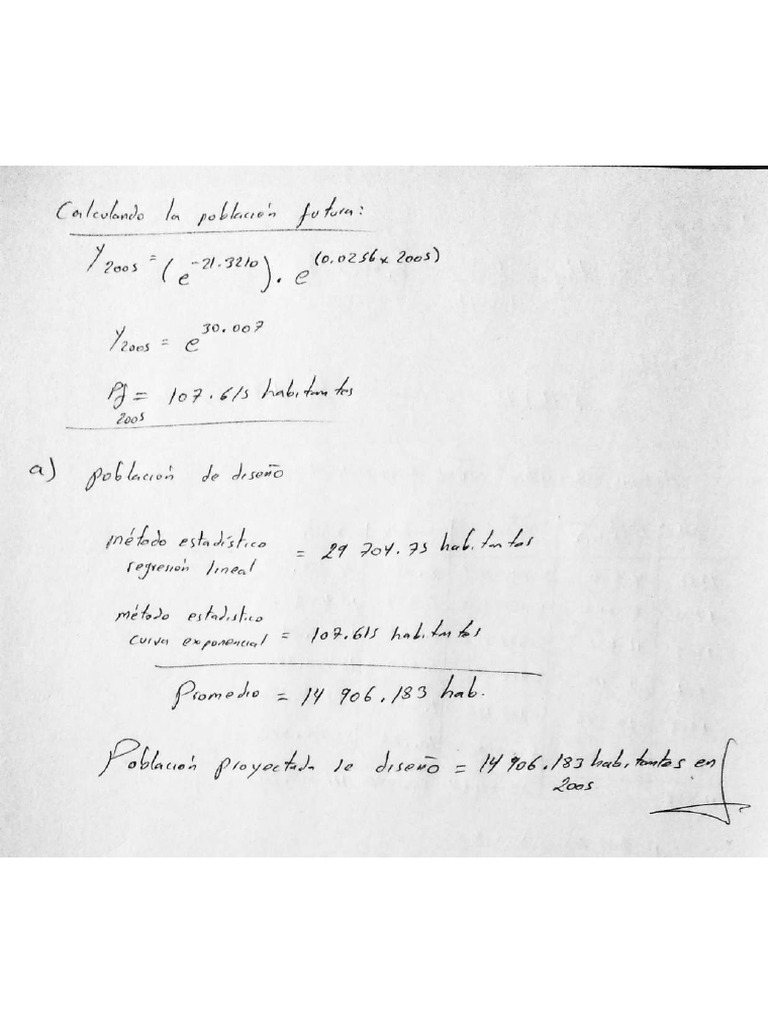 Calculando la población futura:
Y2005 = (e^-21.3210) . e^(0.0256x2005)
Y2005 = e^30.007
Pf = 107.615 habitantes
2005
a) población de diseño
método estadístico
regresión lineal = 29 704.75 habitantes
método estadistico
curva exponencial = 107.615 habitantes
Promedio = 14 906.183 hab.
Población proyectada de diseño = 14 906.183 habitantes en
2005